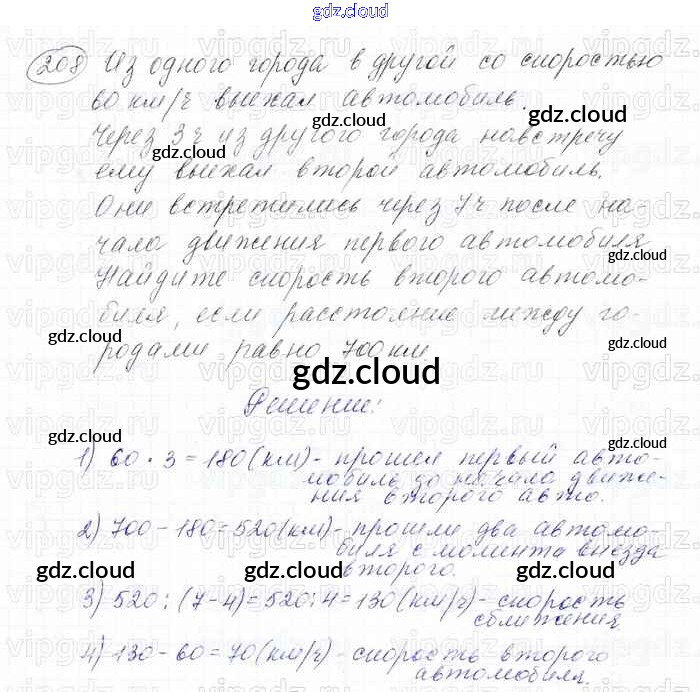 gdz.cloud
208 Из одного города в другой со скоростью
60 км/ч выехал автомобиль.
Через 3 ч из другого города навстречу
ему выехал второй автомобиль.
Они встретились через 7 ч после на-
чала движения первого автомобиля
Найдите скорость второго автомо-
биля, если расстояние между го-
родами равно 700 км.
gdz.cloud
Решение:
1) 60 · 3 = 180 (км) - прошел первый авто-
мобиль до начала движе-
ния второго авто.
2) 700 - 180 = 520 (км) - прошли два автомо-
биля с момента выезда
второго.
3) 520 : (7-4) = 520 : 4 = 130 (км/ч) - скорость
сближения
4) 130 - 60 = 70 (км/ч) - скорость второго
автомобиля.